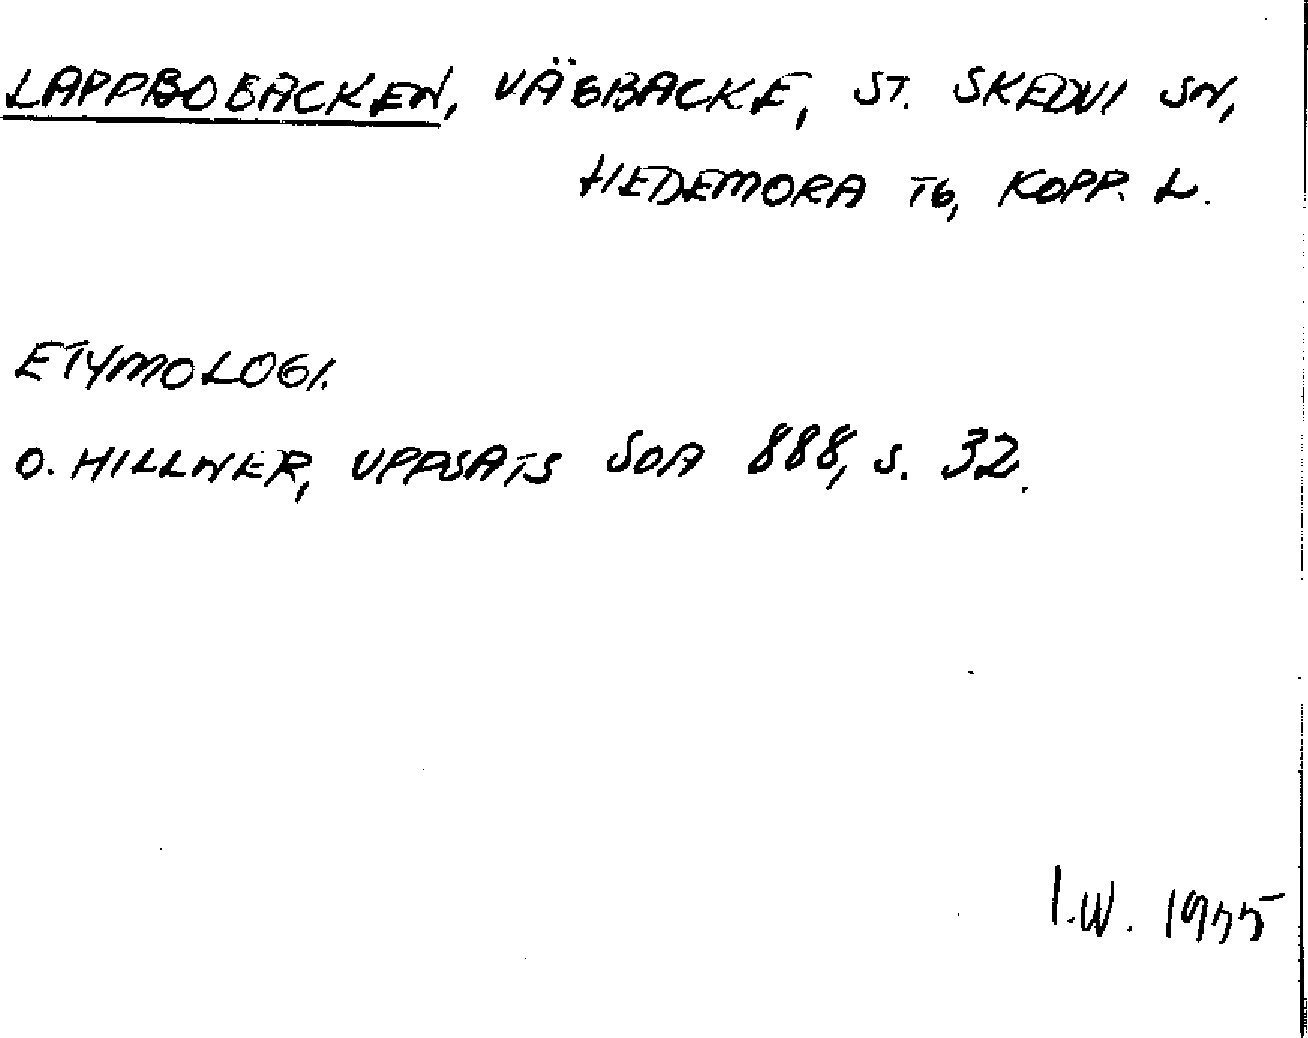 LAPPBOBACKEN, VÄGBACKE, ST. SKEDVI SN,
HEDEMORA TG, KOPP. L.
ETYMOLOGI.
O. HILLNER, UPPSATS SOA 888, S. 32.
I.W.